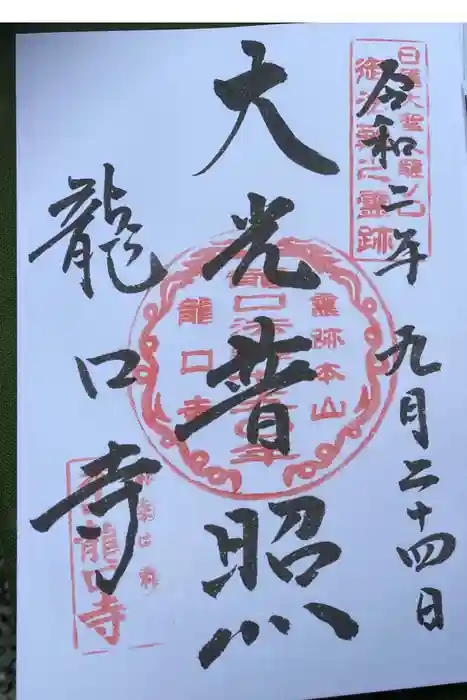 令和二年九月二十四日
大光普照
龍口寺
日蓮大聖人龍ノ口
御法難之霊跡
霊跡本山
龍口寺
龍口寺